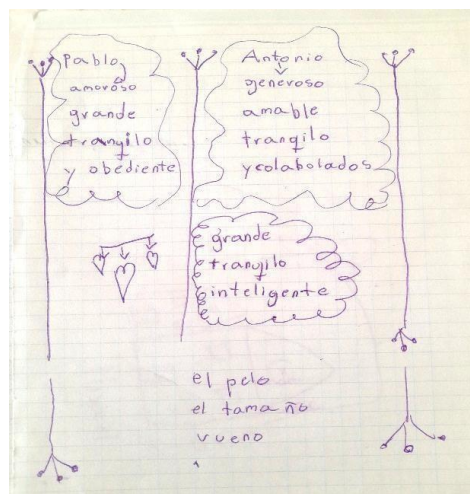 Pablo
amoroso
grande
tranqilo
y obediente
Antonio
generoso
amable
tranqilo
y colabolados
grande
tranqilo
inteligente
el pelo
el tamaño
vueno